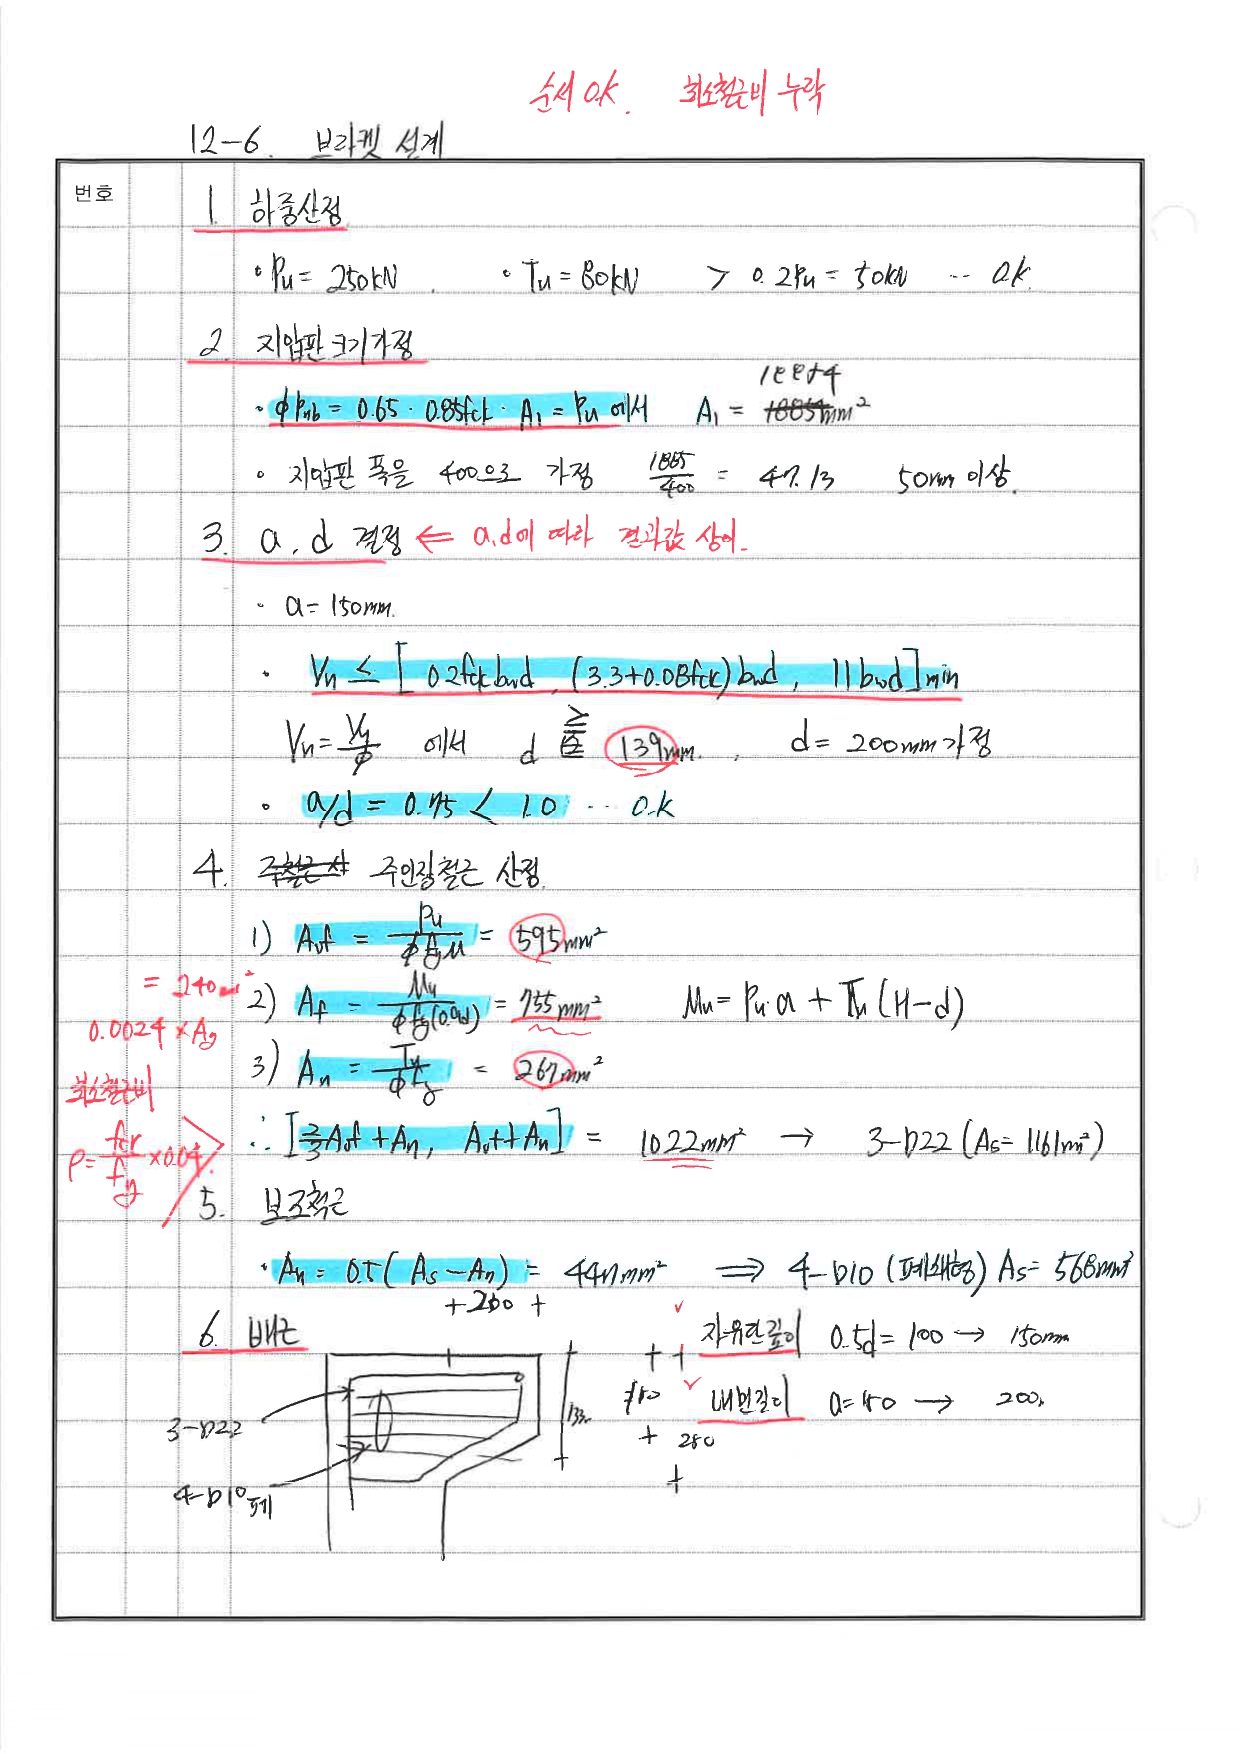 순서 O.K. 최소철근비 누락
12-6. 브라켓 설계
번호
1. 하중산정
• Pu = 250kN. • Tu = 80kN > 0.2Pu = 50kN ... O.K.
2. 지압판 크기가정
• ϕPnb = 0.65 · 0.85fck · A₁ = Pu 에서 A₁ = mm²
• 지압판 폭을 400으로 가정 1885/400 = 47.13 50mm 이상.
3. a, d 결정 ← a,d에 따라 결과값 상이.
• a = 150mm.
• Vn ≤ [0.2fck bwd, (3.3+0.08fck)bwd, 11bwd]min
Vn = Vu/ϕ 에서 d ≥ 139mm. , d = 200mm 가정
• a/d = 0.75 < 1.0 ... O.K
4. 주인장철근 산정.
1) Avf = Pu/ϕfyμ = 595mm²
2) Af = Mu/ϕfy(0.9d) = 755mm² Mu = Pu·a + Tu(H-d)
3) An = Tu/ϕfy = 267mm²
= 240mm²
0.0024 × Ag
최소철근비
ρ = fck/fy × 0.04
∴ [2/3Avf + An, Avf + An] = 1022mm² → 3-D22 (As = 1161mm²)
5. 보조철근
• An = 0.5(As - An) = 447mm² ⇒ 4-D10 (폐쇄형) As = 568mm²
+200+
6. 배근
자유단깊이 0.5d = 100 → 150mm
내민길이 a = 150 → 200.
3-D22
4-D10 폐
250